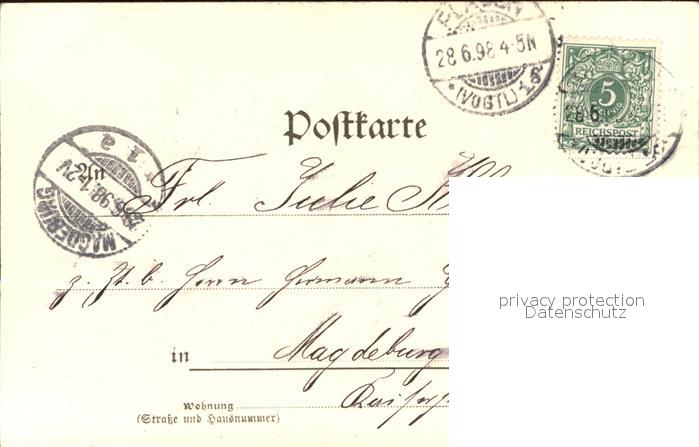 PLAUEN
28 6.98 4-5N
* (VOGTL) 1 b
5
REICHSPOST
28.6
Postkarte
MAGDEBURG
6.98.1-2V
1 a
An
Frl. Julie
z. Zt. b. Herrn Hermann
in Magdeburg
Wohnung
(Straße und Hausnummer)
privacy protection
Datenschutz